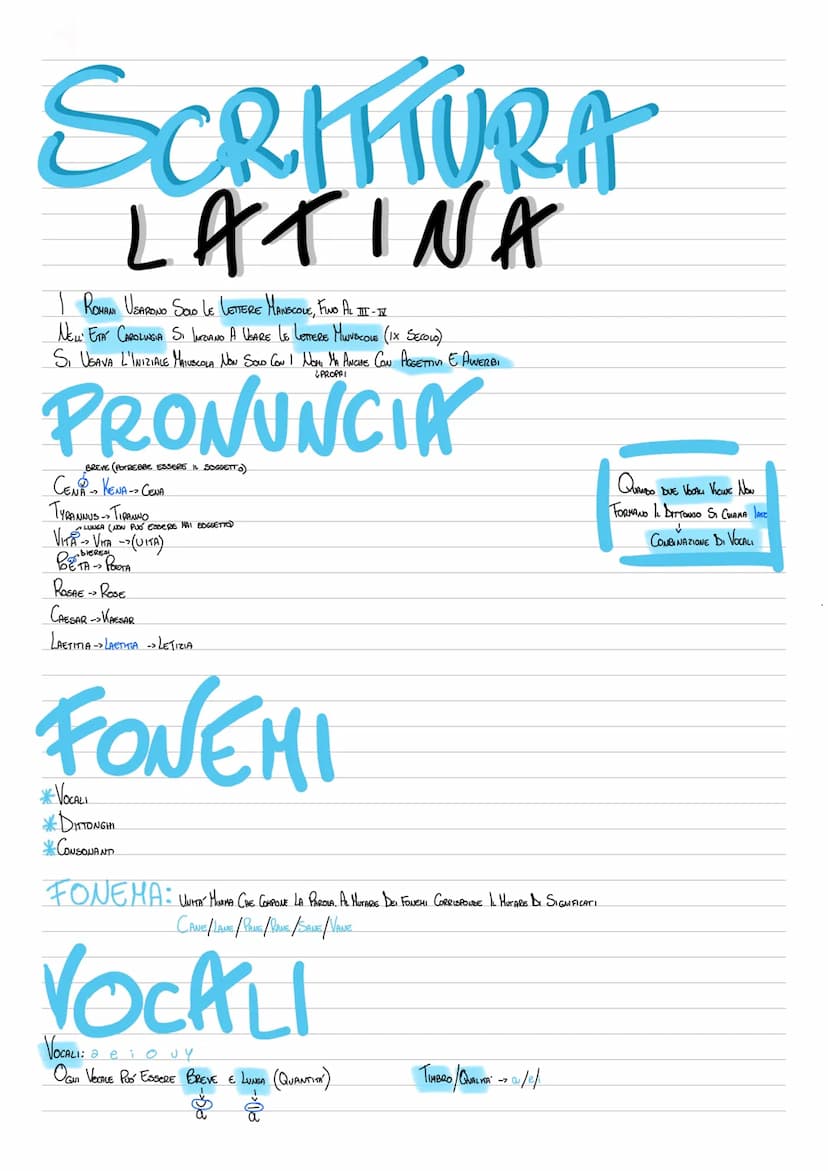 SCRITTURA
LATINA
I ROMANI USARONO SOLO LE LETTERE MAIUSCOLE, FINO AL III-IV
NELL' ETA' CAROLINGIA SI INIZIANO A USARE LE LETTERE MINUSCOLE (IX SECOLO)
SI USAVA L'INIZIALE MAIUSCOLA NON SOLO CON I NOMI MA ANCHE CON AGGETTIVI E AVVERBI
↓PROPRI
PRONUNCIA
BREVE (POTREBBE ESSERE IL SOGGETTO)
CENĂ -> KENA -> CENA
TYRANNUS -> TIRANNO
LUNGA (NON PUO' ESSERE MAI SOGGETTO)
VITĀ -> VITA -> (UITA)
DIERESI
POËTA -> POETA
ROSAE -> ROSE
CAESAR -> KAESAR
LAETITIA -> LAETITIA -> LETIZIA
QUANDO DUE VOCALI VICINE NON
FORMANO IL DITTONGO SI CHIAMA IATO
↓
COMBINAZIONE DI VOCALI
FONEMI
* VOCALI
* DITTONGHI
* CONSONANTI
FONEMA: UNITA' MINIMA CHE COMPONE LA PAROLA. AL MUTARE DEI FONEMI CORRISPONDE IL MUTARE DI SIGNIFICATI
CANE/LANE/PANE/RANE/SANE/VANE
VOCALI
VOCALI: a e i o u y
OGNI VOCALE PUO' ESSERE BREVE E LUNGA (QUANTITA')
TIMBRO/QUALITA' -> a/e/i
↓ ↓
ă ā